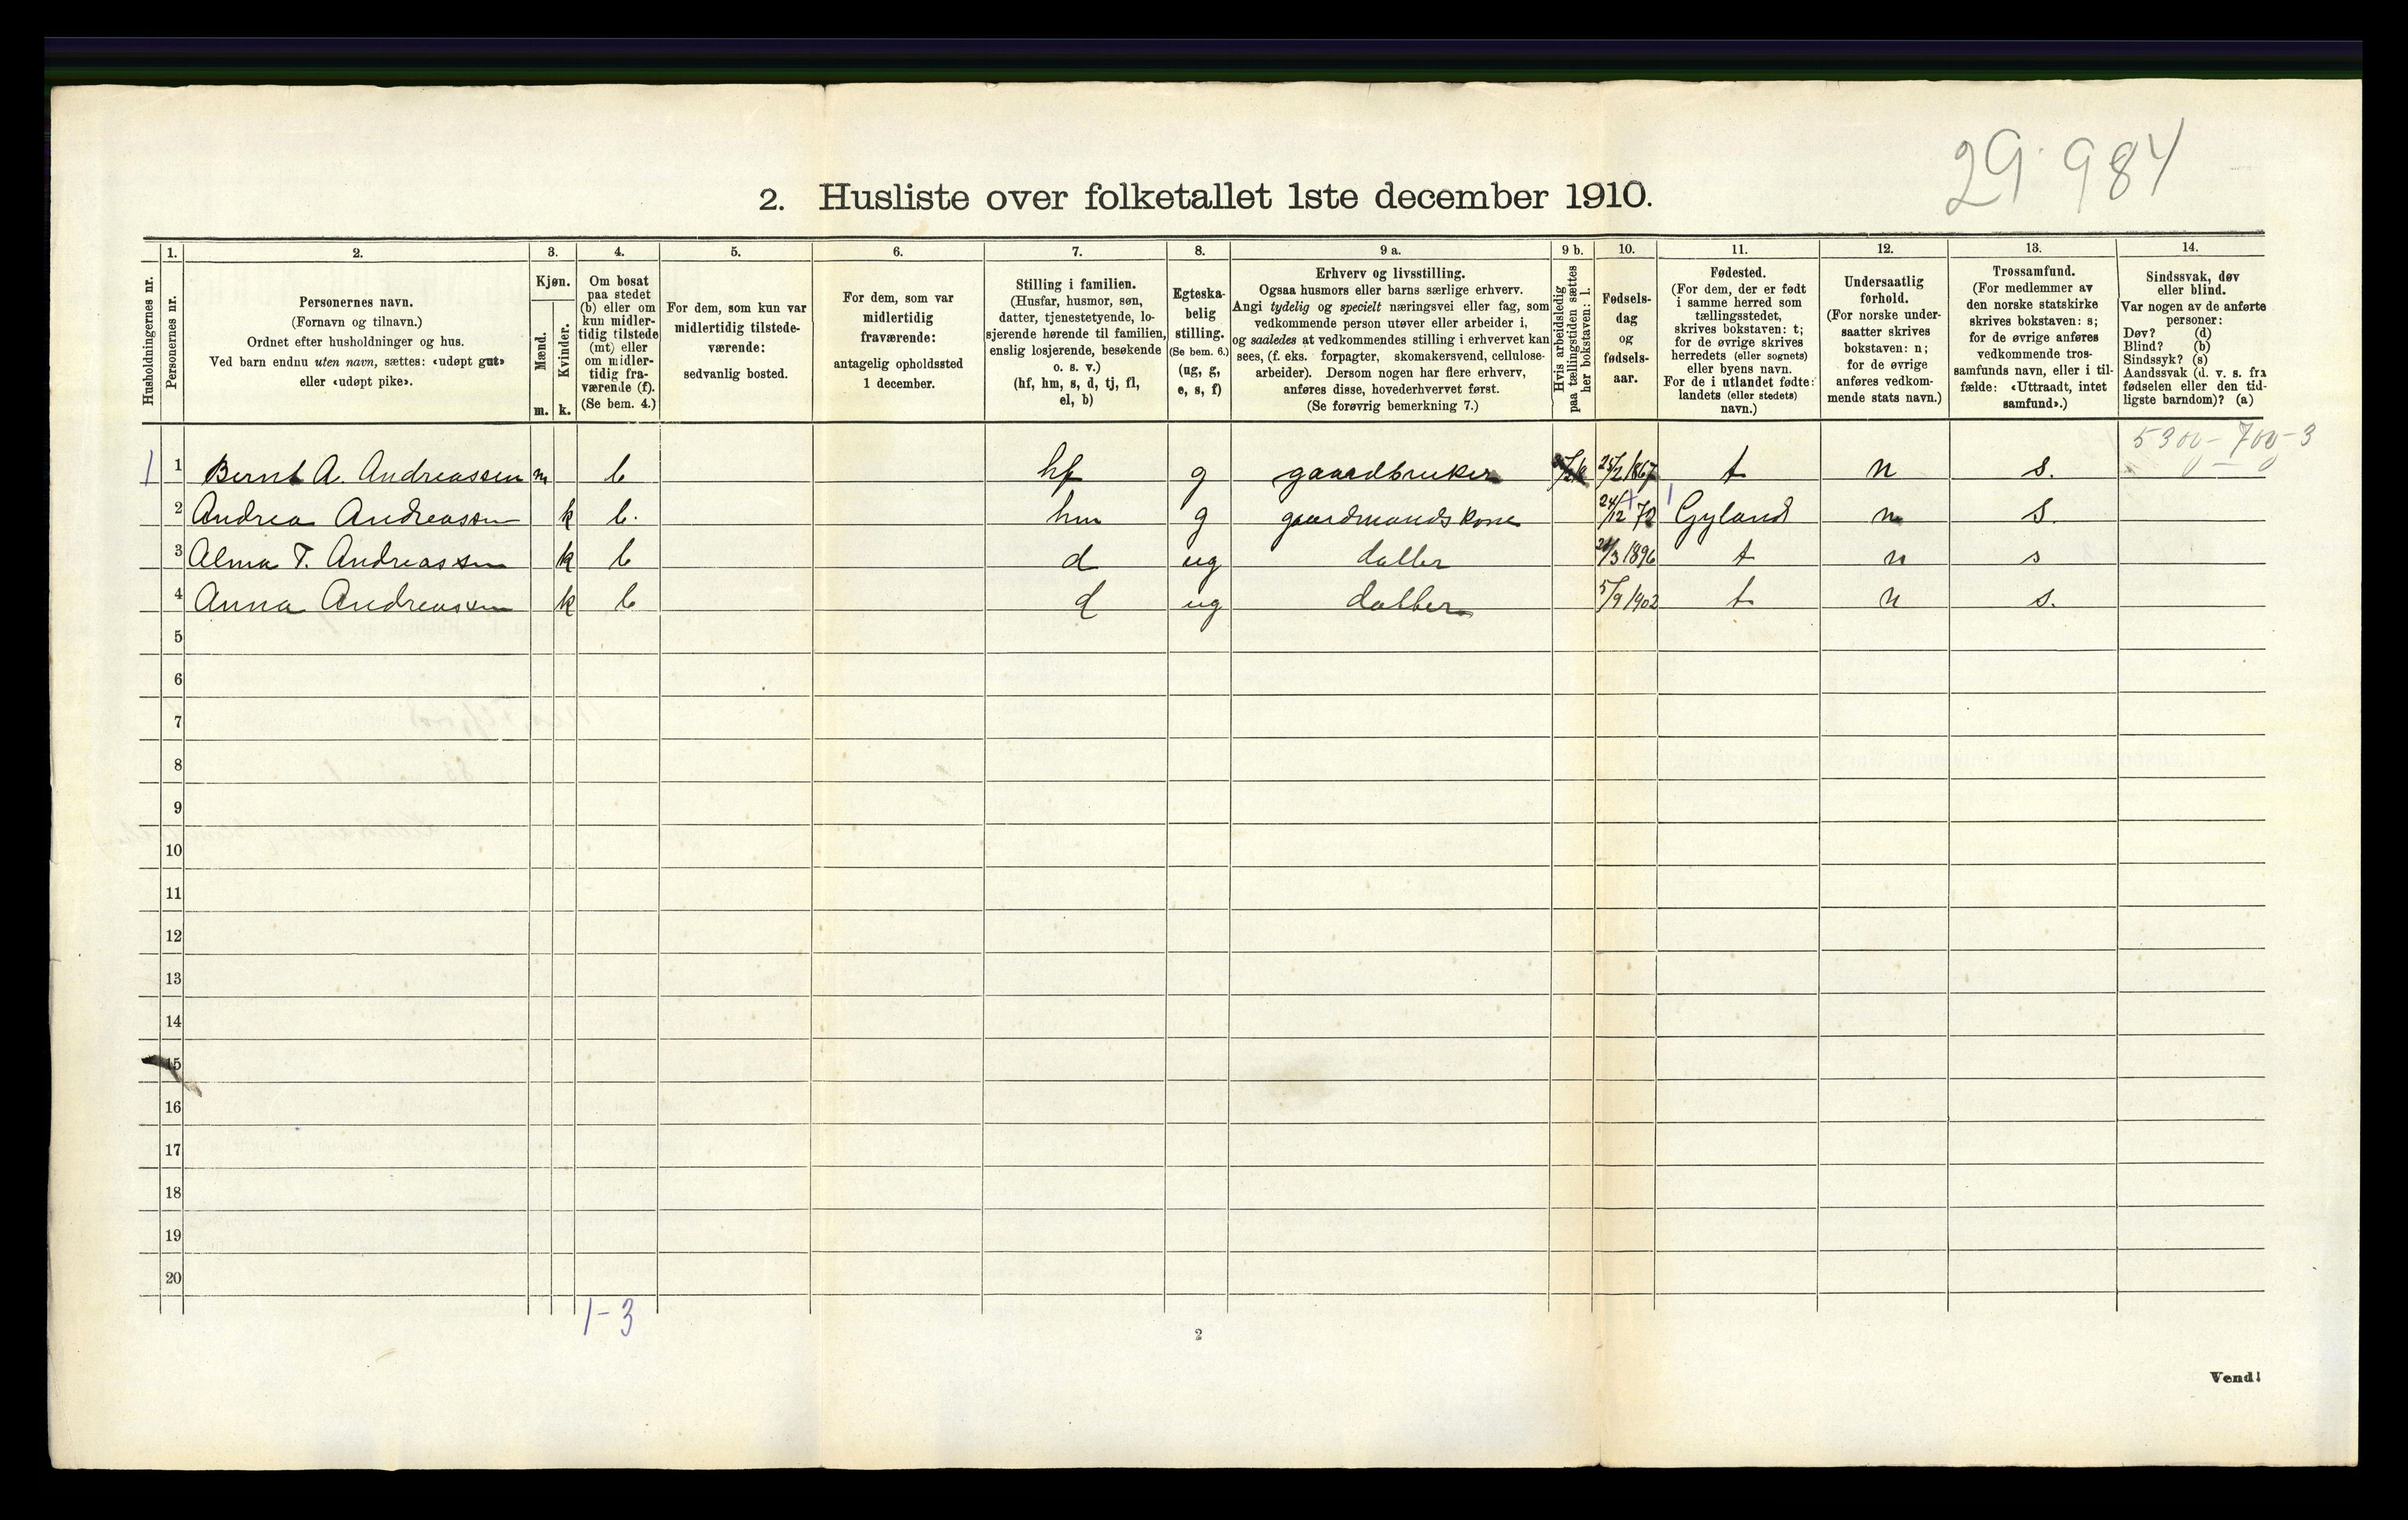 29 984
2. Husliste over folketallet 1ste december 1910.
Husholdningernes nr.
1.
Personernes nr.
2.
Personernes navn.
(Fornavn og tilnavn.)
Ordnet efter husholdninger og hus.
Ved barn endnu uten navn, sættes: «udøpt gut»
eller «udøpt pike».
3.
Kjøn.
Mænd.
m.
Kvinder.
k.
4.
Om bosat
paa stedet
(b) eller om
kun midler-
tidig tilstede
(mt) eller
om midler-
tidig fra-
værende (f).
(Se bem. 4.)
5.
For dem, som kun var
midlertidig tilstede-
værende:
sedvanlig bosted.
6.
For dem, som var
midlertidig
fraværende:
antagelig opholdssted
1 december.
7.
Stilling i familien.
(Husfar, husmor, søn,
datter, tjenestetyende, lo-
sjerende hørende til familien,
enslig losjerende, besøkende
o. s. v.)
(hf, hm, s, d, tj, fl,
el, b)
8.
Egteska-
belig
stilling.
(Se bem. 6.)
(ug, g,
e, s, f)
9 a.
Erhverv og livsstilling.
Ogsaa husmors eller barns særlige erhverv.
Angi tydelig og specielt næringsvei eller fag, som
vedkommende person utøver eller arbeider i,
og saaledes at vedkommendes stilling i erhvervet kan
sees, (f. eks. forpagter, skomakersvend, cellulose-
arbeider). Dersom nogen har flere erhverv,
anføres disse, hovederhvervet først.
(Se forøvrig bemerkning 7.)
9 b.
Hvis arbeidsledig
paa tællingstiden sættes
her bokstaven: l.
10.
Fødsels-
dag
og
fødsels-
aar.
11.
Fødested.
(For dem, der er født
i samme herred som
tællingsstedet,
skrives bokstaven: t;
for de øvrige skrives
herredets (eller sognets)
eller byens navn.
For de i utlandet fødte:
landets (eller stedets)
navn.)
12.
Undersaatlig
forhold.
(For norske under-
saatter skrives
bokstaven: n;
for de øvrige
anføres vedkom-
mende stats navn.)
13.
Trossamfund.
(For medlemmer av
den norske statskirke
skrives bokstaven: s;
for de øvrige anføres
vedkommende tros-
samfunds navn, eller i til-
fælde: «Uttraadt, intet
samfund».)
14.
Sindssvak, døv
eller blind.
Var nogen av de anførte
personer:
Døv? (d)
Blind? (b)
Sindssyk? (s)
Aandssvak (d. v. s. fra
fødselen eller den tid-
ligste barndom)? (a)
5300-700-3
1 1 Bernt A. Andreassen m b hf g gaardbruker 25/2 1867 t n s.
2 Andrea Andreassen k b. hm g gaardmandskone 24/12 72 Gyland n s.
3 Alma T. Andreassen k b d ug datter /3 1896 t n s
4 Anna Andreassen k b d ug datter 5/9 1902 t n s.
5
6
7
8
9
10
11
12
13
14
15
16
17
18
19
20
1-3
2
Vend!